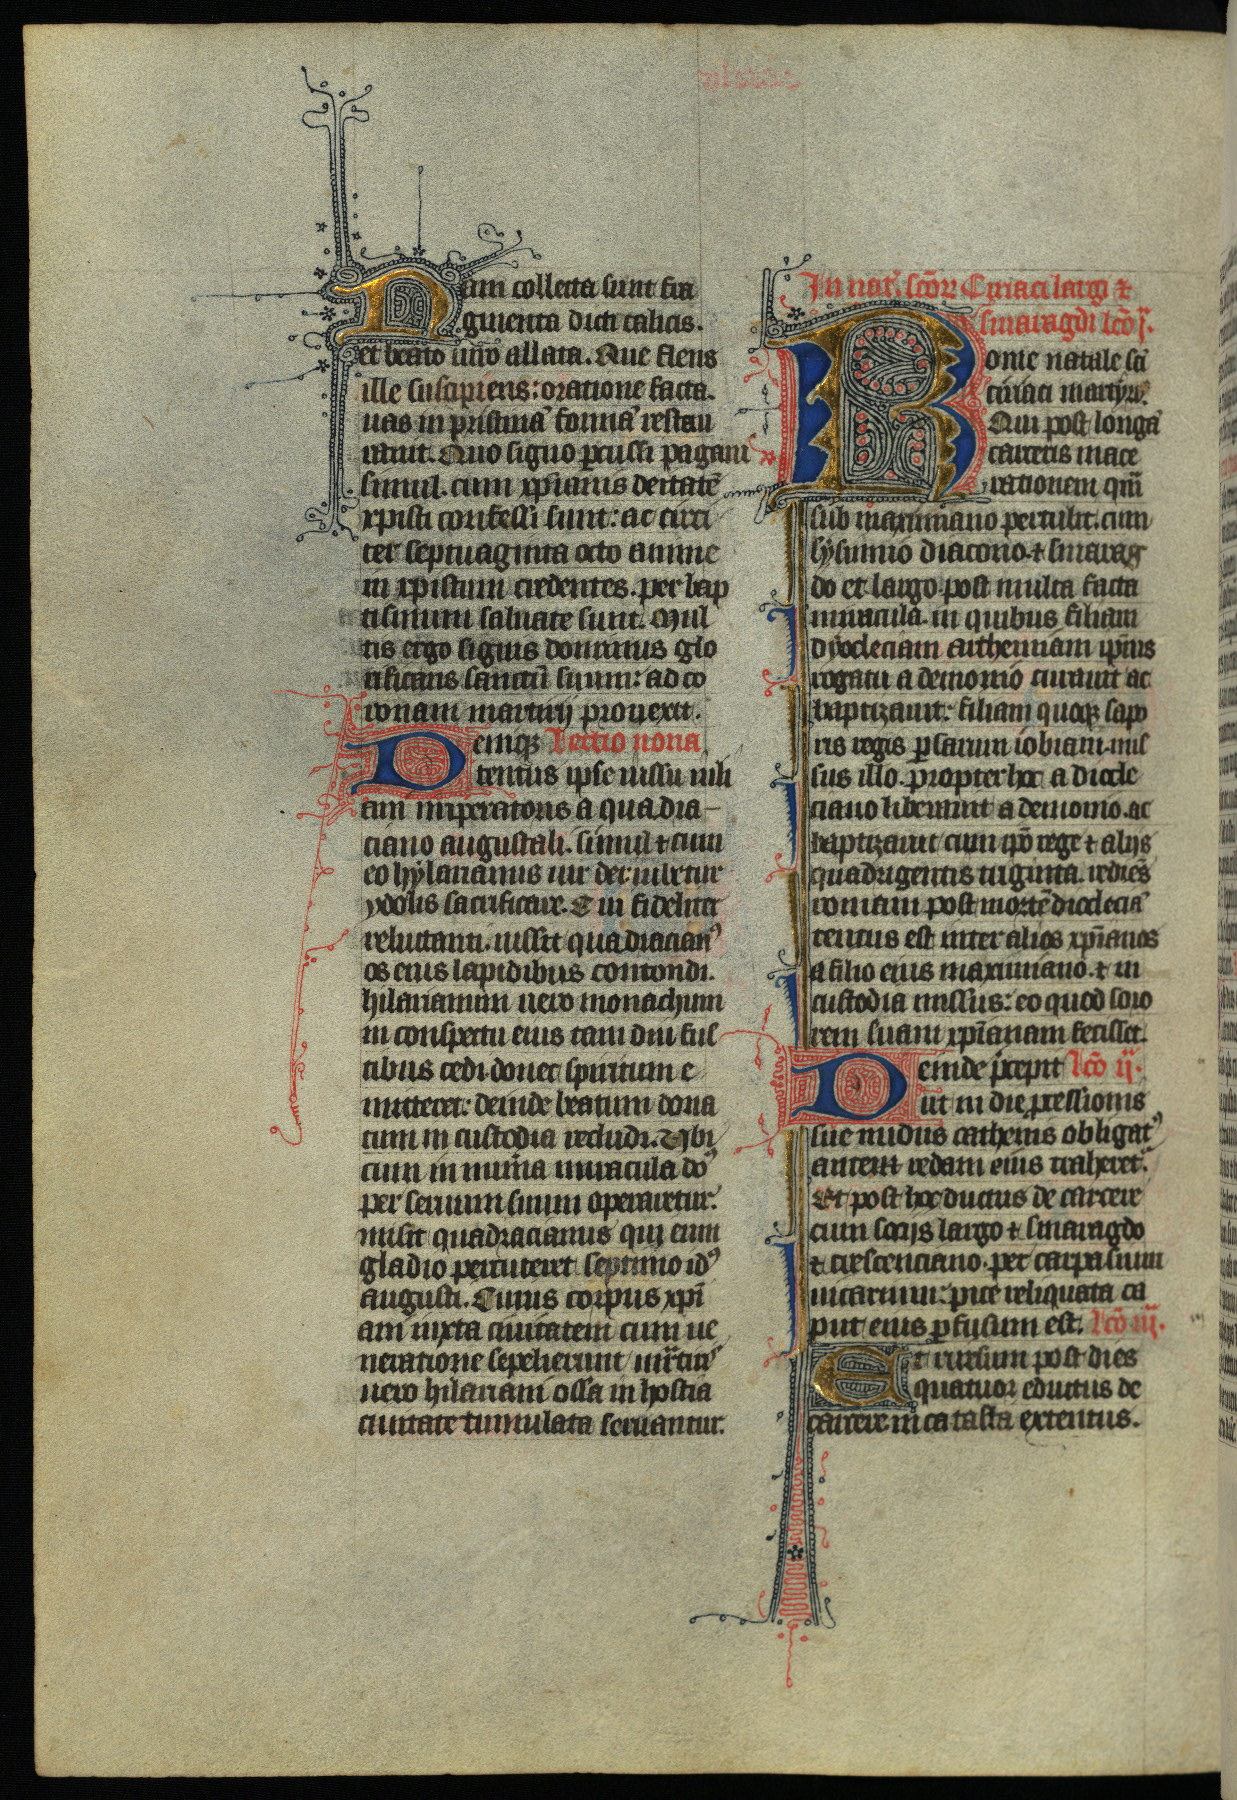 Nam collecta sunt fra
gmenta dicti calicis.
et beato uiro allata. Que flens
ille suscipiens: oratione facta.
uas in pristinā formā restau
rauit. Quo signo ꝑcussi pagani
simul. cum xp̄ianis deitatē
xpisti confessi sunt: ac circi
ter septuaginta octo anime
in xpistum credentes. per bap
tismum saluate sunt. Mul
tis ergo signis dominus glo
rificans sanctū suum: ad co
ronam martirij prouexit.
Deniqꝫ Lectio nona
tentus ipse iussu iuli
ani imperatoris a quadra
ciano augustali. simul ⁊ cum
eo hylarianus uir dei: iubetur
ydolis sacrificare. Cui fideliter
reluctanti. iussit quadracianꝰ
os eius lapidibus contondi.
hilarianum uero monachum
in conspectu eius tam diu fus
tibus cedi. donec spiritum e
mitteret: deinde beatum dona
tum in custodia recludi. Ubi
cum in num̄a miracula dōs
per seruum suum operaretur.
misit quadracianus qui eum
gladio percuteret septimo idꝰ
augusti. Cuius corpus xp̄i
ani iuxta ciuitatem cum ue
neratione sepelierunt mr̄tiris
uero hilariani ossa in hostia
ciuitate tumulata seruantur.
In nat̄. sc̄or̄ Ciriaci largi ⁊
smaragdi lc̄o j.
Rome natale sc̄i
ciriaci martyris.
Qui post longā
carceris mace
rationem quā
sub maximiano pertulit. cum
sysinnio diacono. ⁊ smarag
do et largo. post multa facta
miracula. in quibus filiam
dyocleciani arthemiam ip̄ius
rogatu a demonio curauit ac
baptizauit: filiam quoqꝫ sapo
ris regis ꝑsarum iobiam. mis
sus illo. propter hoc a diocle
ciano liberauit a demonio. ac
baptizauit cum ip̄o rege ⁊ alijs
quadrigentis triginta. rediēs
romam post mortē dioclecia
tentus est inter alios xp̄ianos
a filio eius maximiano. ⁊ in
custodia missus: eo quod soro
rem suam xp̄ianam fecisset.
Deinde p̄cepit lc̄o ij.
ut in die ꝓcessionis
sue nudus cathenis obligatꝰ
ante redam eius traheret᷑.
Et post hoc ductus de carcere
cum socijs largo ⁊ smaragdo
⁊ crescenciano. per carpasium
uicarium: pice reliquata ca
put eius ꝑfusum est. lc̄o iij.
Et rursum post dies
quatuor eductus de
carcere in catasta extentus.